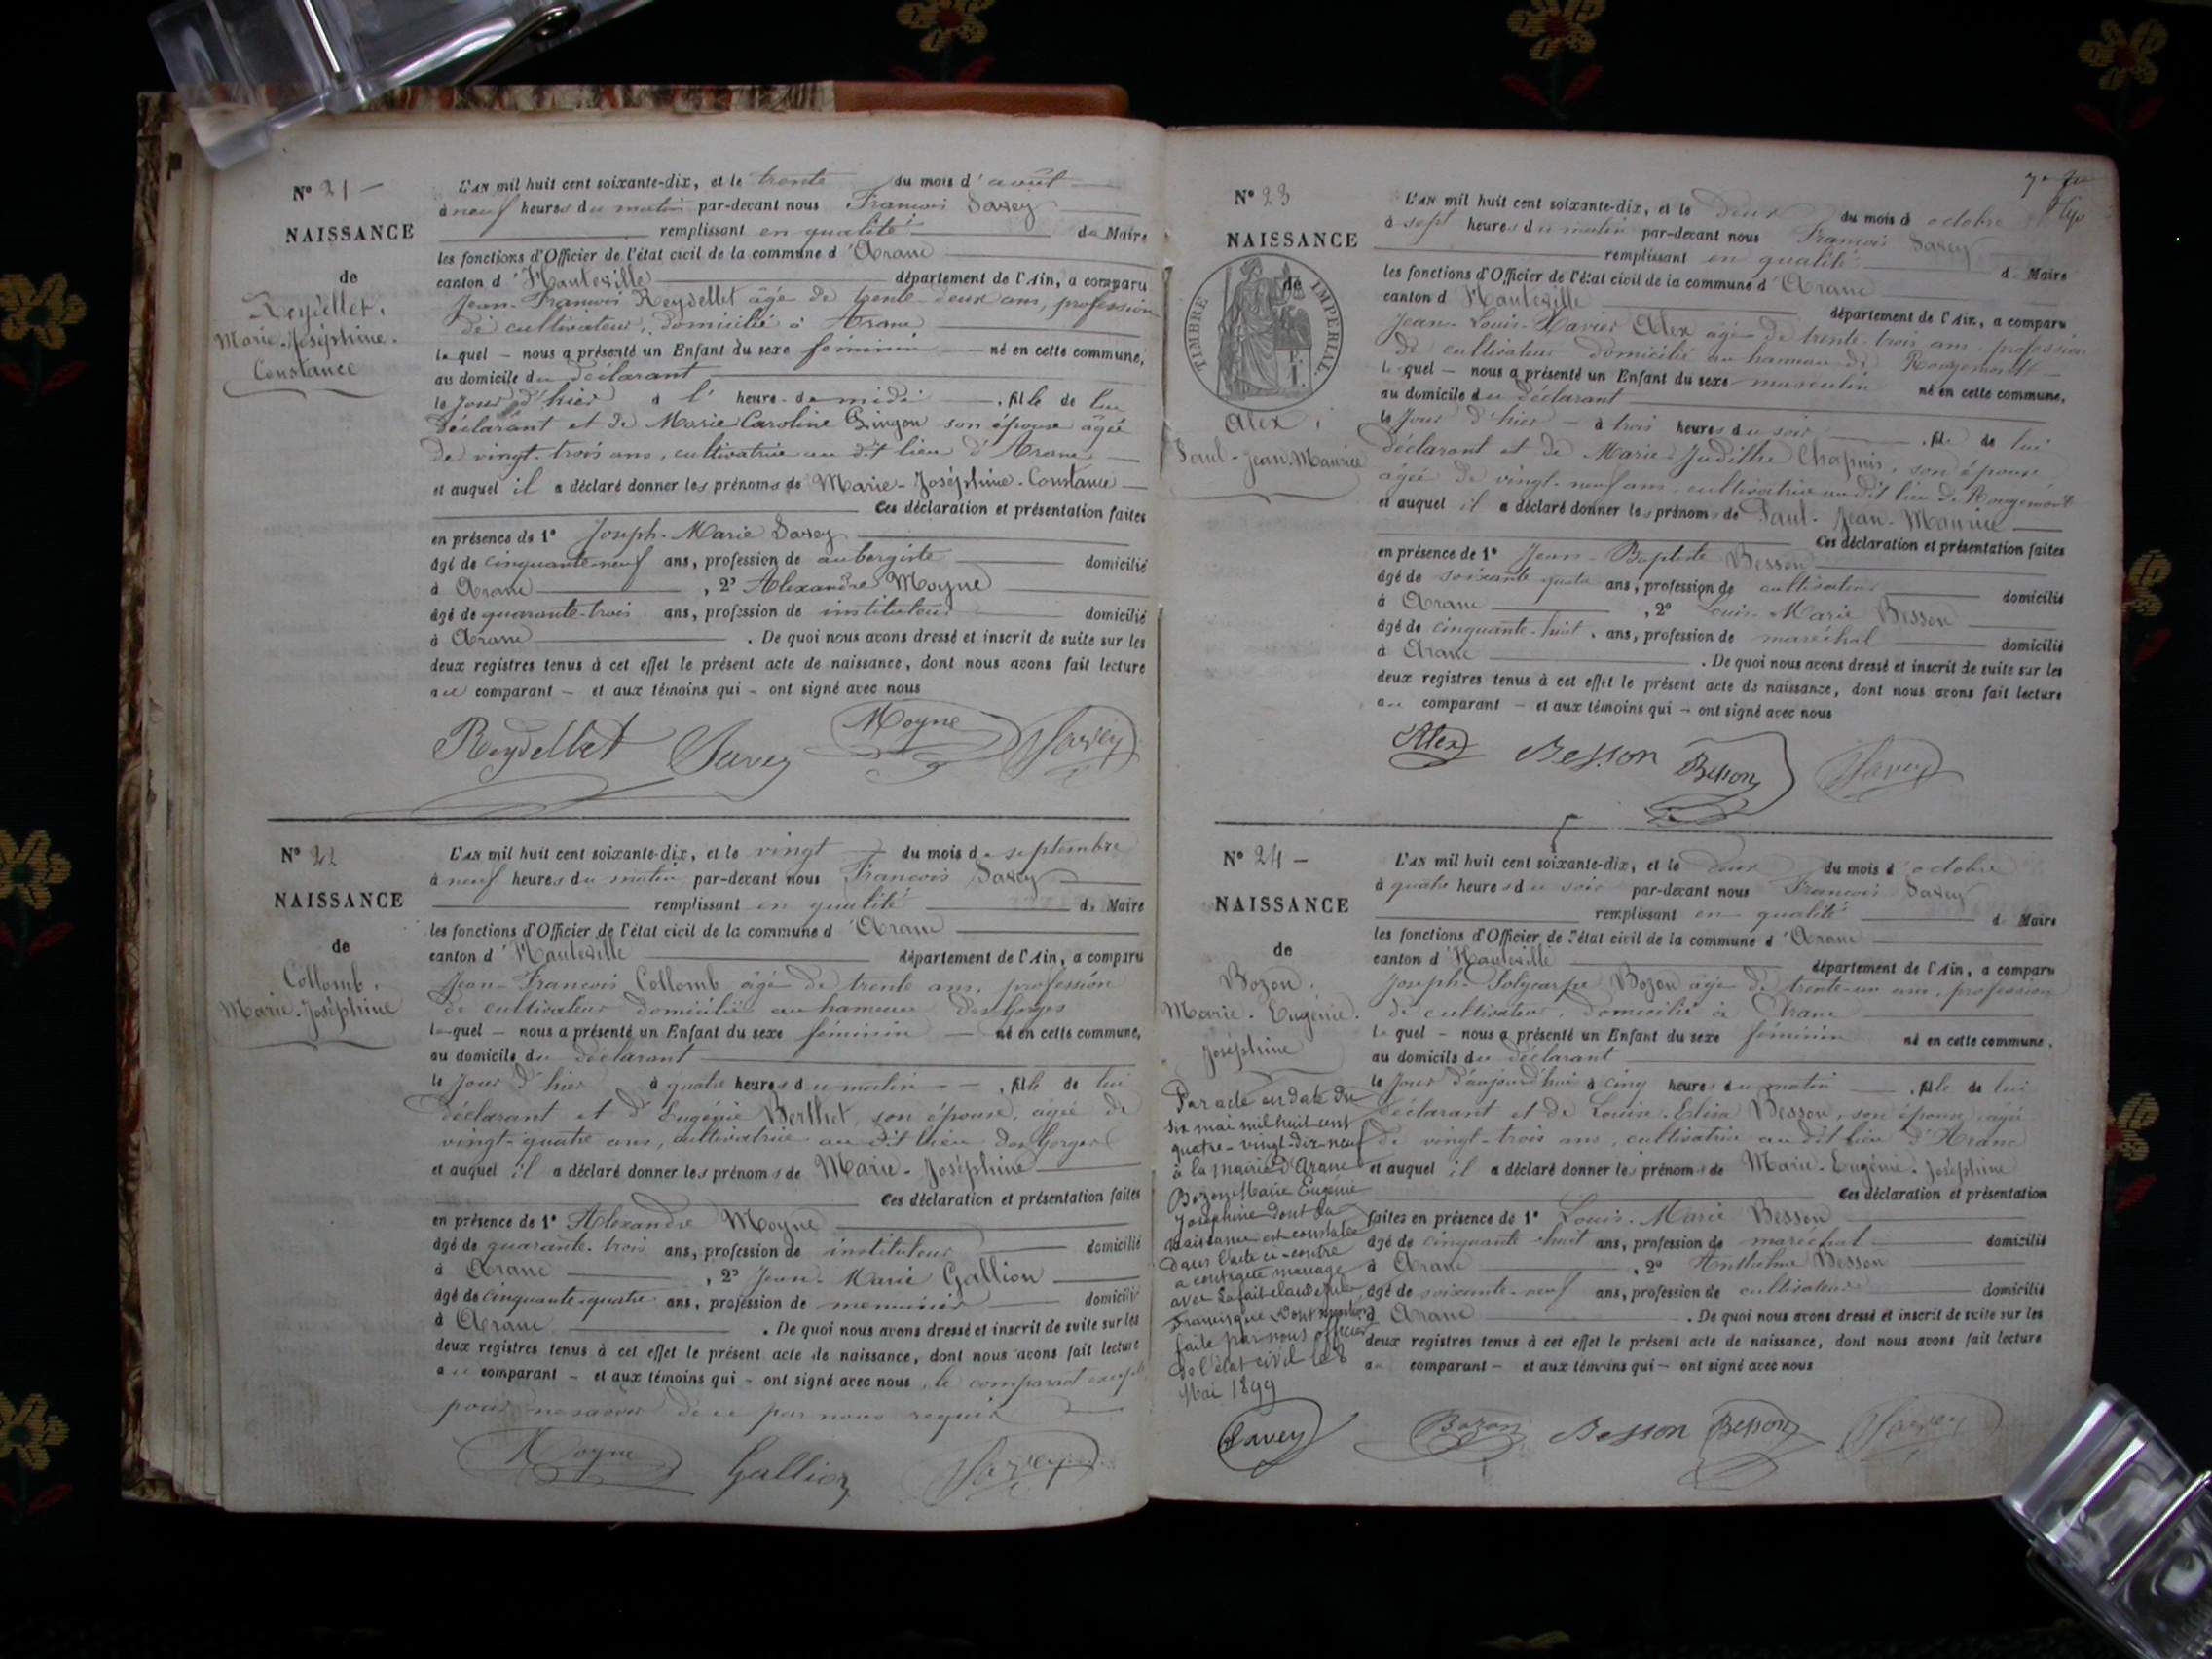 N° 21 -
NAISSANCE
de
Reydellet,
Marie-Joséphine-
Constance
L'AN mil huit cent soixante-dix, et le trente du mois d'août
à neuf heures du matin par-devant nous François Savey
remplissant en qualité de Maire
les fonctions d'Officier de l'état civil de la commune d'Aranc
canton d'Hauteville département de l'Ain, a comparu
Jean-François Reydellet âgé de trente-deux ans, profession
de cultivateur, domicilié à Aranc
lequel - nous a présenté un Enfant du sexe féminin né en cette commune,
au domicile du déclarant
le jour d'hier à l'heure de midi, fille de lui
déclarant et de Marie Caroline son épouse âgée
de vingt-trois ans, cultivatrice au dit lieu d'Aranc
et auquel il a déclaré donner les prénoms de Marie-Joséphine-Constance
Ces déclaration et présentation faites
en présence de 1° Joseph-Marie Savey
âgé de cinquante-neuf ans, profession de aubergiste domicilié
à Aranc, 2° Alexandre Moyne
âgé de quarante-trois ans, profession de instituteur domicilié
à Aranc. De quoi nous avons dressé et inscrit de suite sur les
deux registres tenus à cet effet le présent acte de naissance, dont nous avons fait lecture
au comparant - et aux témoins qui - ont signé avec nous
Reydellet Savey Moyne Savey
N° 22
NAISSANCE
de
Collomb,
Marie-Joséphine
L'AN mil huit cent soixante-dix, et le vingt du mois de septembre
à neuf heures du matin par-devant nous François Savey
remplissant en qualité de Maire
les fonctions d'Officier de l'état civil de la commune d'Aranc
canton d'Hauteville département de l'Ain, a comparu
Jean-François Collomb âgé de trente ans, profession
de cultivateur domicilié au hameau des Gorges
lequel - nous a présenté un Enfant du sexe féminin - né en cette commune,
au domicile du déclarant
le jour d'hier à quatre heures du matin, fille de lui
déclarant et d'Eugénie Berthet, son épouse, âgée de
vingt-quatre ans, cultivatrice au dit lieu des Gorges
et auquel il a déclaré donner les prénoms de Marie-Joséphine
Ces déclaration et présentation faites
en présence de 1° Alexandre Moyne
âgé de quarante-trois ans, profession de instituteur domicilié
à Aranc, 2° Jean-Marie Gallion
âgé de cinquante-quatre ans, profession de menuisier domicilié
à Aranc. De quoi nous avons dressé et inscrit de suite sur les
deux registres tenus à cet effet le présent acte de naissance, dont nous avons fait lecture
au comparant - et aux témoins qui - ont signé avec nous, le comparant excepté
pour ne savoir de ce par nous requis
Moyne Gallion Savey
N° 23
NAISSANCE
de
TIMBRE IMPÉRIAL
Alex,
Paul-Jean-Maurice
L'AN mil huit cent soixante-dix, et le deux du mois d'octobre
à sept heures du matin par-devant nous François Savey
remplissant en qualité de Maire
les fonctions d'Officier de l'état civil de la commune d'Aranc
canton d'Hauteville département de l'Ain, a comparu
Jean-Louis-Xavier Alex âgé de trente-trois ans, profession
de cultivateur domicilié au hameau de Rougemont
lequel - nous a présenté un Enfant du sexe masculin né en cette commune,
au domicile du déclarant
le jour d'hier - à trois heures du soir, fils de lui
déclarant et de Marie-Judithe Chapuis, son épouse
âgée de vingt-neuf ans, cultivatrice au dit lieu de Rougemont
et auquel il a déclaré donner les prénoms de Paul-Jean-Maurice
Ces déclaration et présentation faites
en présence de 1° Jean-Baptiste Besson
âgé de soixante-quatre ans, profession de cultivateur domicilié
à Aranc, 2° Louis-Marie Besson
âgé de cinquante-huit, ans, profession de maréchal domicilié
à Aranc. De quoi nous avons dressé et inscrit de suite sur les
deux registres tenus à cet effet le présent acte de naissance, dont nous avons fait lecture
au comparant - et aux témoins qui - ont signé avec nous
Alex Besson Besson Savey
N° 24 -
NAISSANCE
de
Bozon,
Marie-Eugénie-
Joséphine
Par acte en date du
six mai mil huit cent
quatre-vingt-dix-neuf
à la mairie d'Aranc
Bozon Marie Eugénie
Joséphine dont la
naissance est constatée
dans l'acte ci-contre
a contracté mariage
avec
Francisque Dont mention
faite par nous officier
de l'état civil le 8
Mai 1899
Savey
L'AN mil huit cent soixante-dix, et le deux du mois d'octobre
à quatre heures du soir par-devant nous François Savey
remplissant en qualité de Maire
les fonctions d'Officier de l'état civil de la commune d'Aranc
canton d'Hauteville département de l'Ain, a comparu
Joseph-Polycarpe Bozon âgé de trente-un ans, profession
de cultivateur, domicilié à Aranc
lequel - nous a présenté un Enfant du sexe féminin né en cette commune,
au domicile du déclarant
le jour d'aujourd'hui à cinq heures du matin, fille de lui
déclarant et de Louise-Elisa Besson, son épouse âgée
de vingt-trois ans, cultivatrice au dit lieu d'Aranc
et auquel il a déclaré donner les prénoms de Marie-Eugénie-Joséphine
Ces déclaration et présentation
faites en présence de 1° Louis-Marie Besson
âgé de cinquante-huit ans, profession de maréchal domicilié
à Aranc, 2° Anthelme Besson
âgé de soixante-neuf ans, profession de cultivateur domicilié
à Aranc. De quoi nous avons dressé et inscrit de suite sur les
deux registres tenus à cet effet le présent acte de naissance, dont nous avons fait lecture
au comparant - et aux témoins qui - ont signé avec nous
Bozon Besson Besson Savey